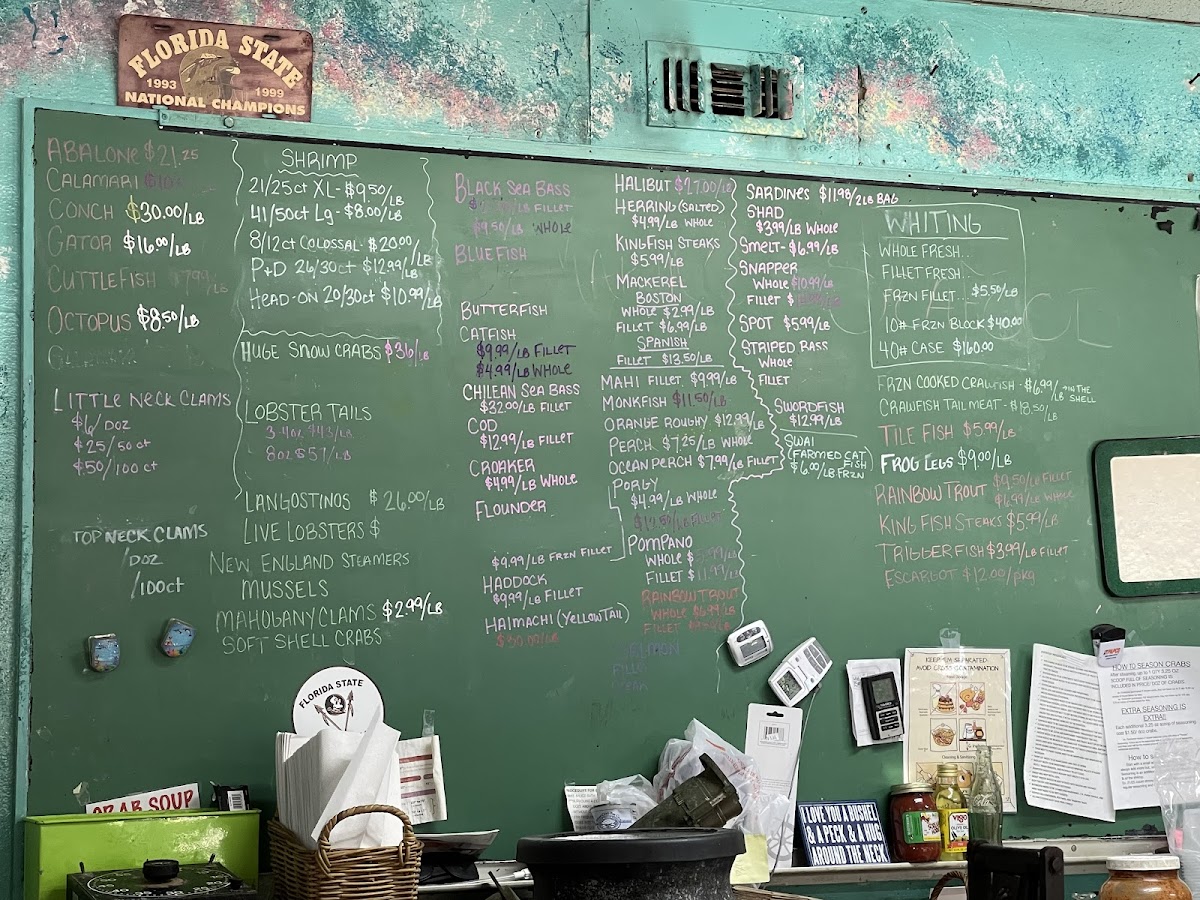 FLORIDA STATE
1993 1999
NATIONAL CHAMPIONS
ABALONE $21.25
CALAMARI
CONCH $30.00/LB
GATOR $16.00/LB
CUTTLEFISH $7.99/LB
OCTOPUS $8.50/LB
LITTLE NECK CLAMS
$6/DOZ
$25/50ct
$50/100ct
TOP NECK CLAMS
/DOZ
/100ct
SHRIMP
21/25ct XL - $9.50/LB
41/50ct Lg - $8.00/LB
8/12ct COLOSSAL - $20.00/LB
P+D 26/30ct $12.99/LB
HEAD-ON 20/30ct $10.99/LB
HUGE SNOW CRABS $36/LB
LOBSTER TAILS
3-4oz $43/LB
8oz $57/LB
LANGOSTINOS $26.00/LB
LIVE LOBSTERS $
NEW ENGLAND STEAMERS
MUSSELS
MAHOGANY CLAMS $2.99/LB
SOFT SHELL CRABS
BLACK SEA BASS
/LB FILLET
$9.50/LB WHOLE
BLUEFISH
BUTTERFISH
CATFISH
$9.99/LB FILLET
$4.99/LB WHOLE
CHILEAN SEA BASS
$32.00/LB FILLET
COD
$12.99/LB FILLET
CROAKER
$4.99/LB WHOLE
FLOUNDER
$9.99/LB FRZN FILLET
HADDOCK
$9.99/LB FILLET
HAIMACHI (YELLOWTAIL)
$30.00/LB
HALIBUT $27.00/LB
HERRING (SALTED)
$4.99/LB WHOLE
KINGFISH STEAKS
$5.99/LB
MACKEREL
BOSTON
WHOLE $2.99/LB
FILLET $6.99/LB
SPANISH
FILLET $13.50/LB
MAHI FILLET $9.99/LB
MONKFISH $11.50/LB
ORANGE ROUGHY $12.99/LB
PERCH $7.25/LB WHOLE
OCEAN PERCH $7.99/LB FILLET
PORGY
$4.99/LB WHOLE
$12.50/LB FILLET
POMPANO
WHOLE $5.99/LB
FILLET $11.99/LB
RAINBOW TROUT
WHOLE $6.99/LB
FILLET $9.50/LB
SARDINES $11.98/2LB BAG
SHAD
$3.99/LB WHOLE
SMELT - $6.99/LB
SNAPPER
WHOLE $10.99/LB
FILLET $
SPOT $5.99/LB
STRIPED BASS
WHOLE
FILLET
SWORDFISH
$12.99/LB
SWAI
(FARMED CAT
FISH)
$6.00/LB FRZN
WHITING
WHOLE FRESH..
FILLET FRESH..
FRZN FILLET.. $5.50/LB
10# FRZN BLOCK $40.00
40# CASE $160.00
FRZN COOKED CRAWFISH - $6.99/LB *IN THE SHELL
CRAWFISH TAIL MEAT - $18.50/LB
TILE FISH $5.99/LB
FROG LEGS $9.00/LB
RAINBOW TROUT $9.50/LB FILLET
$6.99/LB WHOLE
KING FISH STEAKS $5.99/LB
TRIGGERFISH $3.99/LB FILLET
ESCARGOT $12.00/pkg
FLORIDA STATE
CRAB SOUP
I LOVE YOU A BUSHEL
& A PECK & A HUG
AROUND THE NECK
KEEP 'EM SEPARATED
AVOID CROSS CONTAMINATION
HOW TO SEASON CRABS
EXTRA SEASONING IS
EXTRA$